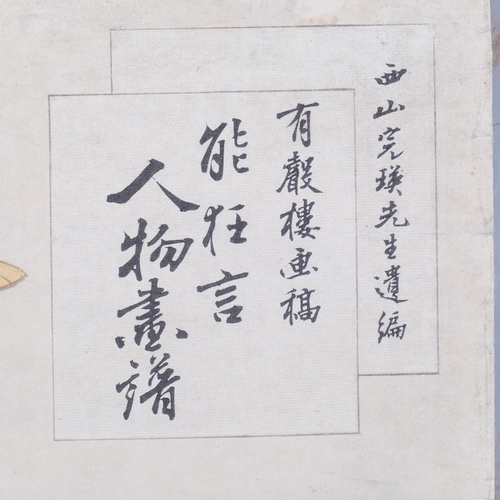 西山完瑛先生遺編
有穀樓画稿
能狂言
人物畫譜